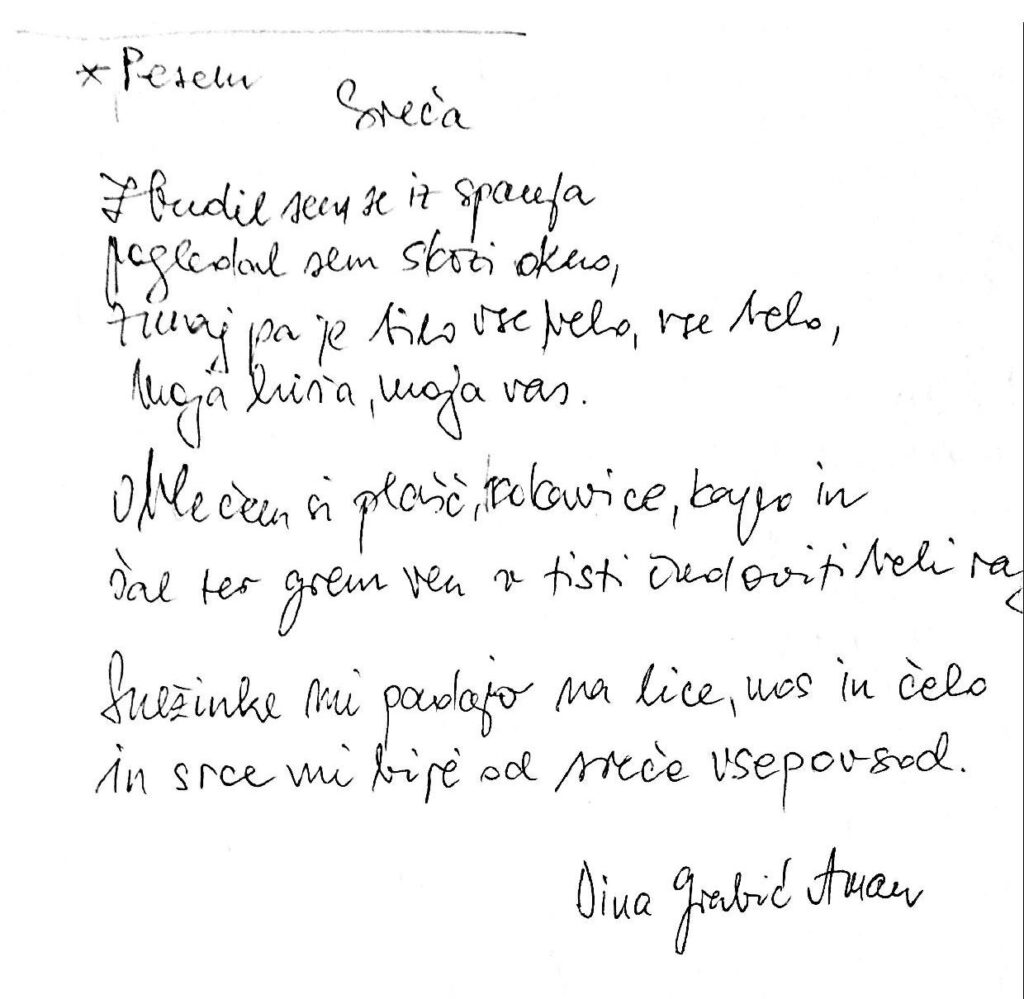 * Pesem
Sreča
Zbudil sem se iz spanja
pogledal sem skozi okno,
zunaj pa je bilo vse belo, vse belo,
moja hiša, moja vas.
Oblečem si plašč, rokavice, kapo in
šal ter grem ven v tisti čudoviti beli raj
Snežinke mi padajo na lice, nos in čelo
in srce mi bije od sreče vsepovsod.
Dina Grabić Aman